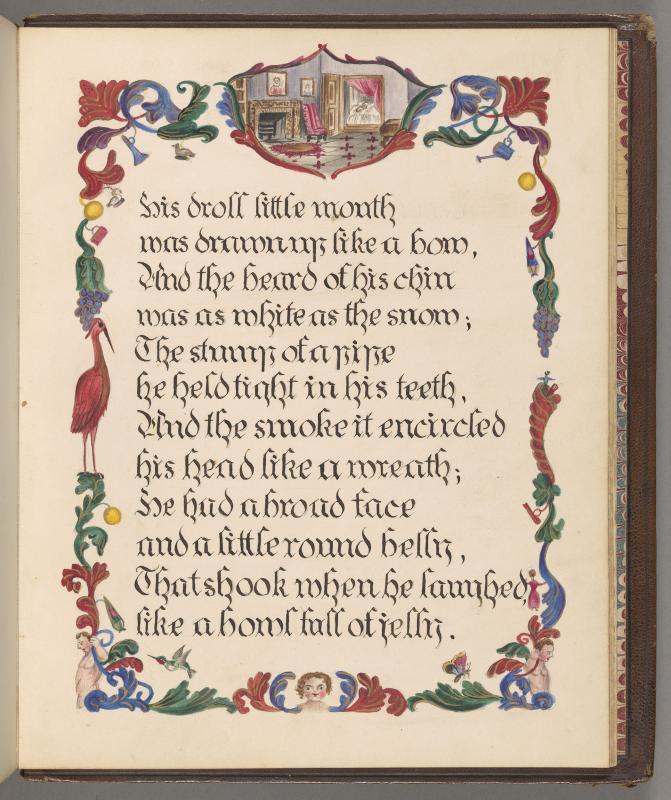 His droll little mouth
was drawn up like a bow,
And the beard of his chin
was as white as the snow;
The stump of a pipe
he held tight in his teeth,
And the smoke it encircled
his head like a wreath;
He had a broad face
and a little round belly,
That shook when he laughed,
like a bowl full of jelly.